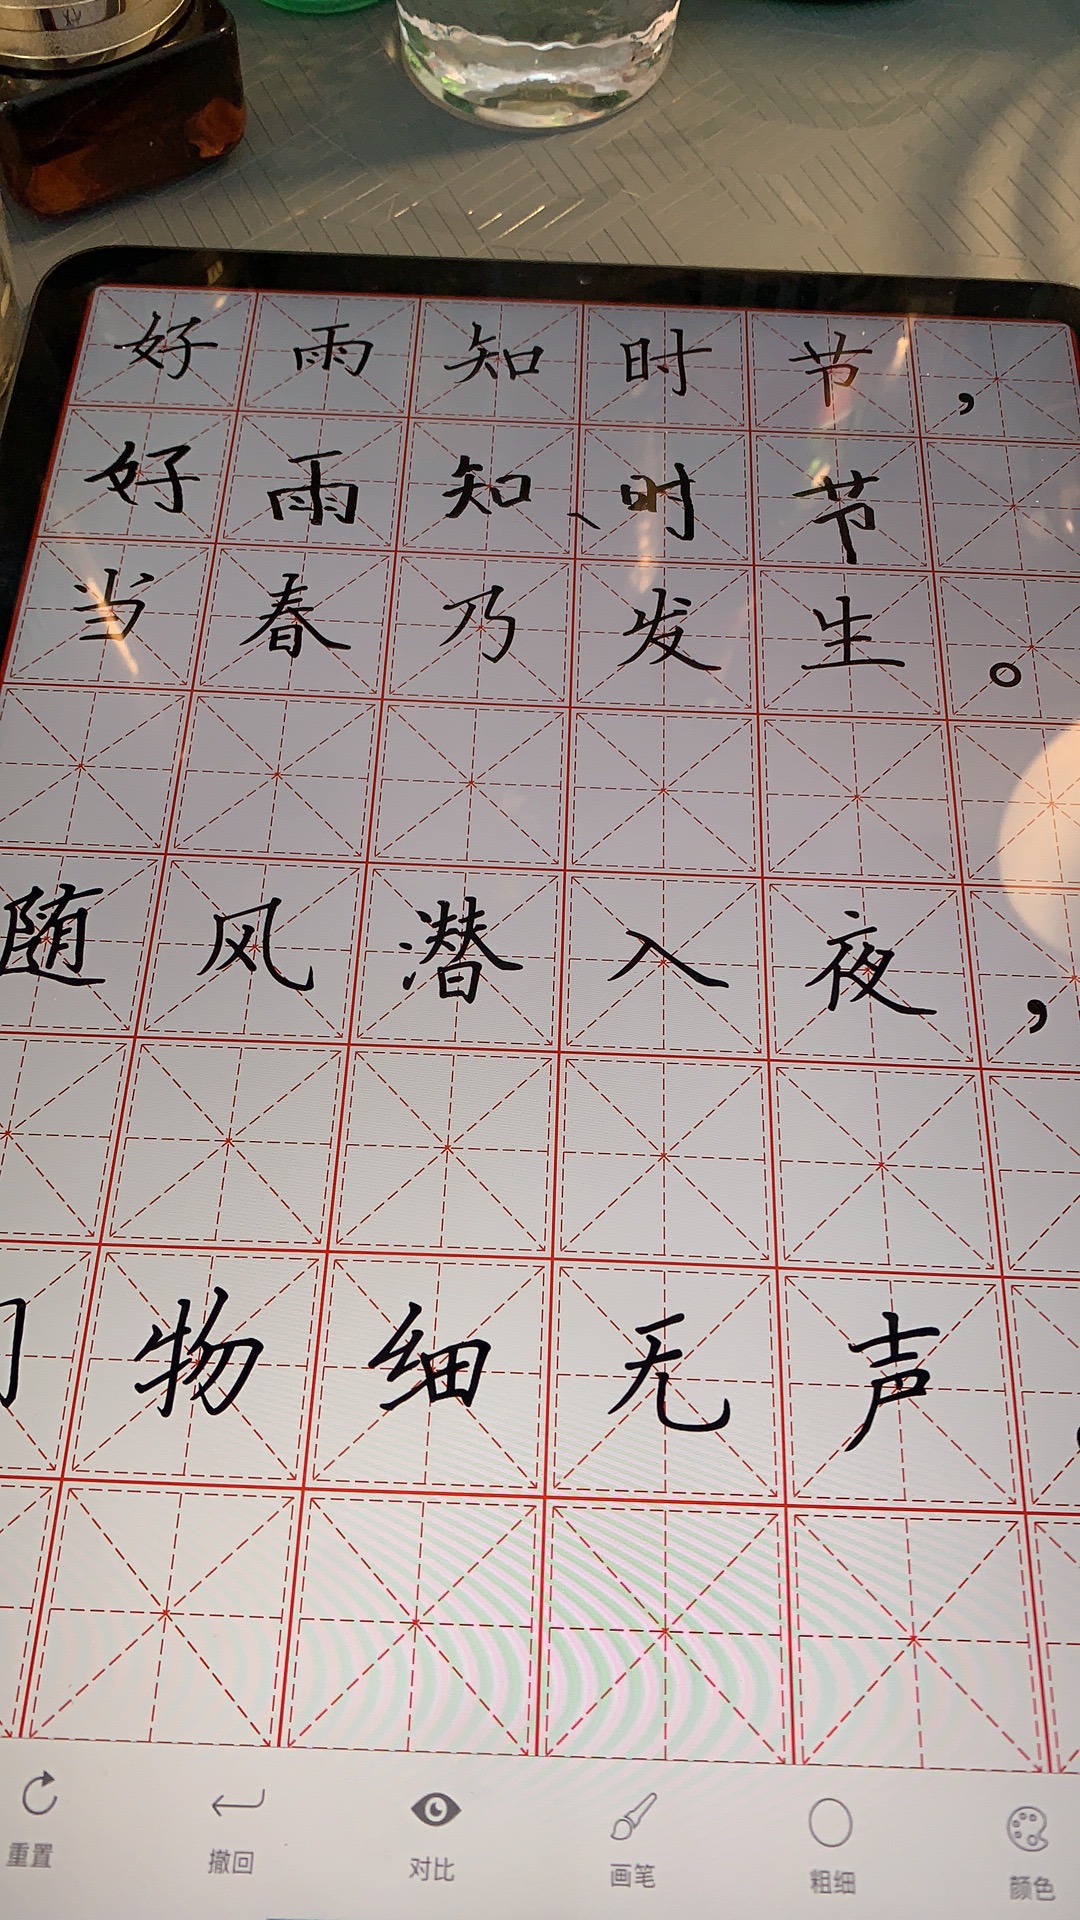 好雨知时节，
好雨知时节
当春乃发生。
随风潜入夜，
物细无声。
重置 撤回 对比 画笔 粗细 颜色